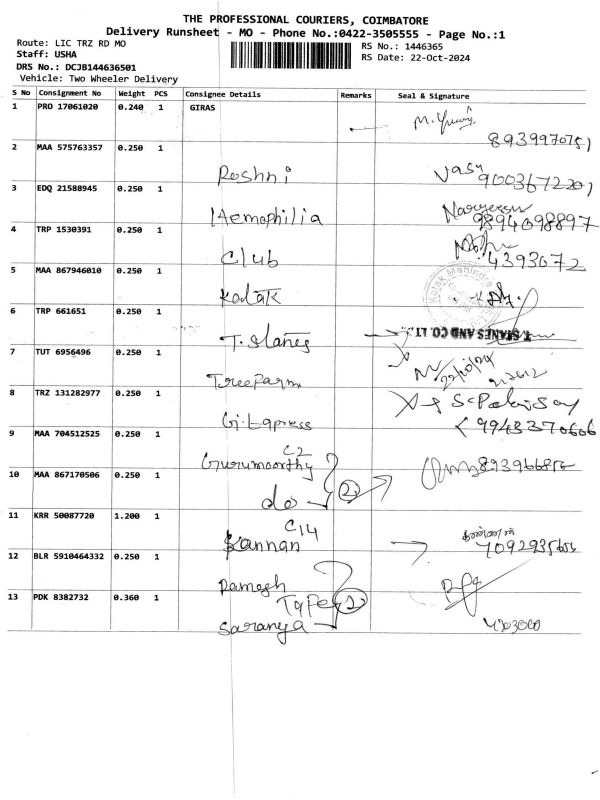 THE PROFESSIONAL COURIERS, COIMBATORE
Delivery Runsheet - MO - Phone No.:0422-3505555 - Page No.:1
Route: LIC TRZ RD MO
RS No.: 1446365
Staff: USHA
RS Date: 22-Oct-2024
DRS No.: DCJB144636501
Vehicle: Two Wheeler Delivery
S No Consignment No Weight PCS Consignee Details Remarks Seal & Signature
1 PRO 17061020 0.240 1 GIRAS
8939970751
2 MAA 575763357 0.250 1 Roshni Vasu
9003672201
3 EDQ 21588945 0.250 1 Haemophilia
9894098897
4 TRP 1530391 0.250 1 Club
4393072
5 MAA 867946010 0.250 1 Kotak
Kotak Mahindra
6 TRP 661651 0.250 1 T. Stanes
T. STANES AND CO. LT
7 TUT 6956496 0.250 1
22/10/24
8 TRZ 131282977 0.250 1
9943370606
9 MAA 704512525 0.250 1 Gurumoorthy C2
10 MAA 867170506 0.250 1 do 2
11 KRR 50087720 1.200 1 Kannan C14
12 BLR 5910464332 0.250 1 Ramesh
13 PDK 8382732 0.360 1 Type 2
Saranya